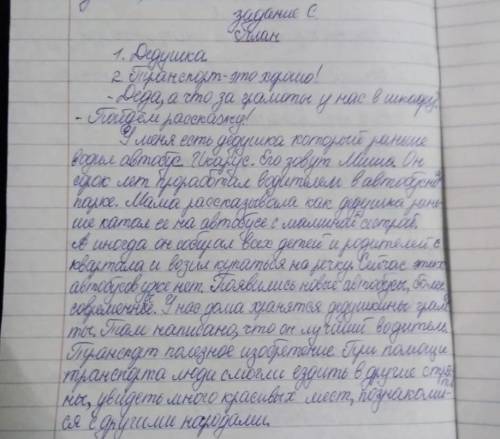 задание С.
План
1. Дедушка.
2. Транспорт-это хорошо!
- Деда, а что за грамоты у нас в шкафу?
- Пойдём расскажу!
У меня есть дедушка который раньше
водил автобус Икарус. Его зовут Миша. Он
сорок лет проработал водителем в автобусном
парке. Мама рассказывала как дедушка рань-
ше катал ее на автобусе с маминой сестрой.
А иногда он собирал всех детей и родителей с
квартала и возил купаться на речку. Сейчас этих
автобусов уже нет. Появились новые автобусы, более
современные. У нас дома хранятся дедушкины грамо-
ты. Там написано, что он лучший водитель.
Транспорт полезное изобретение. При помощи
транспорта люди смогли ездить в другие стра-
ны, увидеть много красивых мест, познакоми-
ся с другими народами.